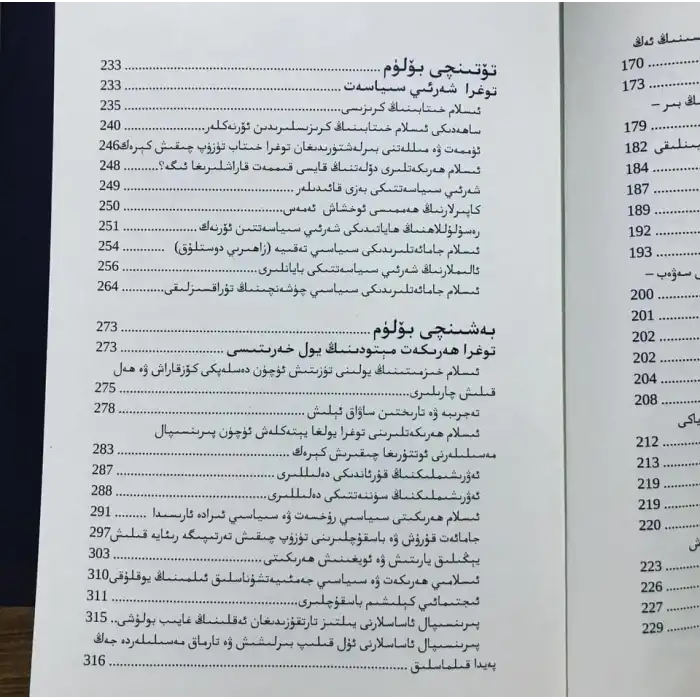 تۆتىنچى بۆلۈم ........ 233
توغرا شەرئىي سىياسەت ........ 233
ئىسلام خىتابىنىڭ كرىزىسى ........ 235
ساھەدىكى ئىسلام خىتابىنىڭ كرىزىسلىرىدىن ئۆرنەكلەر ........ 240
ئۈممەت ۋە مىللەتنى بىرلەشتۈرىدىغان توغرا خىتاب تۈزۈپ چىقىش كېرەك 246
ئىسلام ھەرىكەتلىرى دۆلەتنىڭ قايسى قىممەت قاراشلىرىغا ئىگە؟ ........ 248
شەرئىي سىياسەتتىكى بەزى قائىدىلەر ........ 249
كاپىرلارنىڭ ھەممىسى ئوخشاش ئەمەس ........ 250
رەسۇلۇللاھنىڭ ھاياتىدىكى شەرئىي سىياسەتتىن ئۆرنەك ........ 251
ئىسلام جامائەتلىرىدىكى سىياسىي تەقىيە (زاھىرىي دوستلۇق) ........ 254
ئالىملارنىڭ شەرئىي سىياسەتتىكى بايانلىرى ........ 256
ئىسلام جامائەتلىرىدىكى سىياسىي چۈشەنچىنىڭ تۇراقسىزلىقى ........ 264
بەشىنچى بۆلۈم ........ 273
توغرا ھەرىكەت مېتودىنىڭ يول خەرىتىسى ........ 273
ئىسلام خىزمىتىنىڭ يولىنى تۈزىتىش ئۈچۈن دەسلەپكى كۆزقاراش ۋە ھەل
قىلىش چارىلىرى ........ 275
تەجرىبە ۋە تارىختىن ساۋاق ئېلىش ........ 278
ئىسلام ھەرىكەتلىرىنى توغرا يولغا يېتەكلەش ئۈچۈن پىرىنسىپال
مەسىلىلەرنى ئوتتۇرىغا چىقىرىش كېرەك ........ 283
ئەۋرىشىملىكنىڭ قۇرئاندىكى دەلىللىرى ........ 287
ئەۋرىشىملىكنىڭ سۈننەتتىكى دەلىللىرى ........ 288
ئىسلام ھەرىكىتى سىياسىي رۇخسەت ۋە سىياسىي ئىرادە ئارىسىدا ........ 291
جامائەت قۇرۇش ۋە باسقۇچلىرىنى تۈزۈپ چىقىش تەرتىپىگە رىئايە قىلىش 297
يېڭىلىق يارىتىش ۋە ئويغىنىش ھەرىكىتى ........ 303
ئىسلامىي ھەرىكەت ۋە سىياسىي جەمئىيەتشۇناسلىق ئىلمىنىڭ يوقلۇقى 310
ئىجتىمائىي كېلىشىم باسقۇچلىرى ........ 311
پىرىنسىپال ئاساسلارنى يىلتىز تارتقۇزىدىغان ئەقلىنىڭ غايىب بولۇشى.. 315
پىرىنسىپال ئاساسلارنى ئۇل قىلىپ بىرلىشىش ۋە تارماق مەسىلىلەردە جەڭ
پەيدا قىلماسلىق ........ 316
170
173
ڭ بىر –
179
182
184
187
189
192
193
ى سەۋەب –
200
201
202
202
204
208
212
213
219
219
220
223
226
227
229